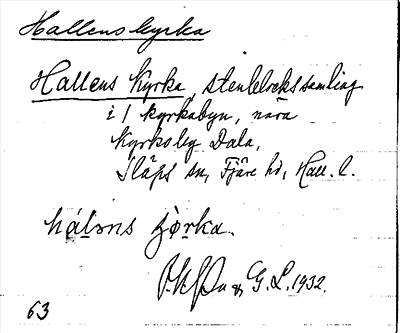 Hallens kyrka
Hallens Kyrka, stenblockssamling
i l kyrkabyn, nära
Kyrkoby Dala,
Släps sn, Fjäre hd, Hall. l.
hálǝns ɟǫ̀rka.
& G. L. 1932.
63